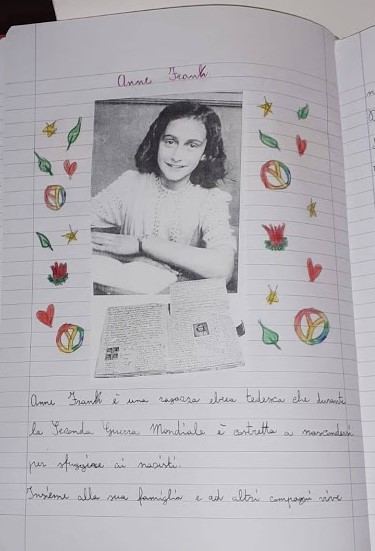 Anne Frank
Anne Frank è una ragazza ebrea tedesca che durante
la Seconda Guerra Mondiale è costretta a nascondersi
per sfuggire ai nazisti.
Insieme alla sua famiglia e ad altri compagni vive